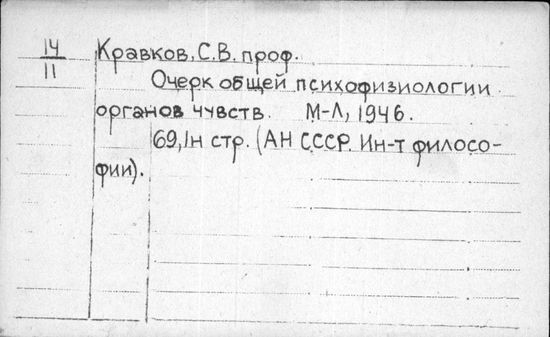 14
11
Кравков, С.В. проф.
Очерк общей психофизиологии
органов чувств. М-Л, 1946.
69, 1н стр. (АН СССР. Ин-т филосо-
фии).